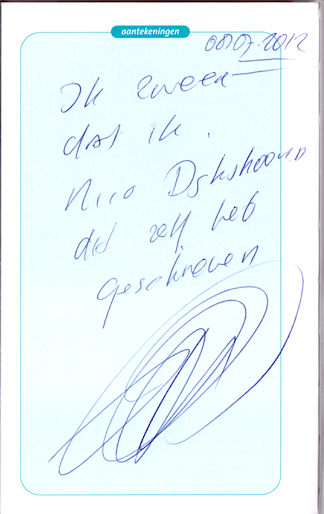 aantekeningen
08 07.2012
Ik zweer
dat ik.
Nico Dijkshoorn
dit zelf heb
geschreven